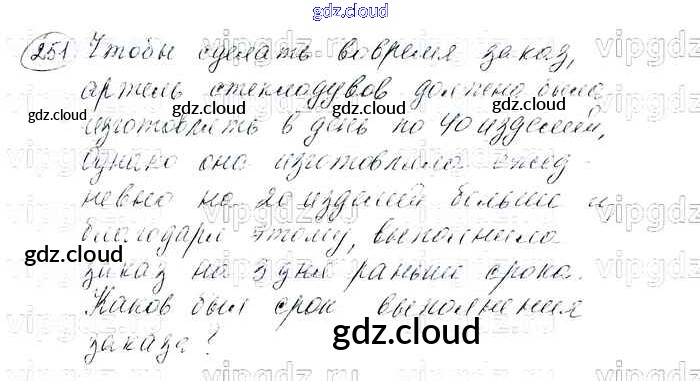 gdz.cloud
251 Чтобы сделать вовремя заказ,
артель стеклодувов должна была
изготовлять в день по 40 изделий,
однако она изготовляла ежед-
невно на 20 изделий больше и
благодаря этому, выполнила
заказ на 3 дня раньше срока.
Каков был срок выполнения
заказа?
gdz.cloud
gdz.cloud
gdz.cloud
gdz.cloud
gdz.cloud